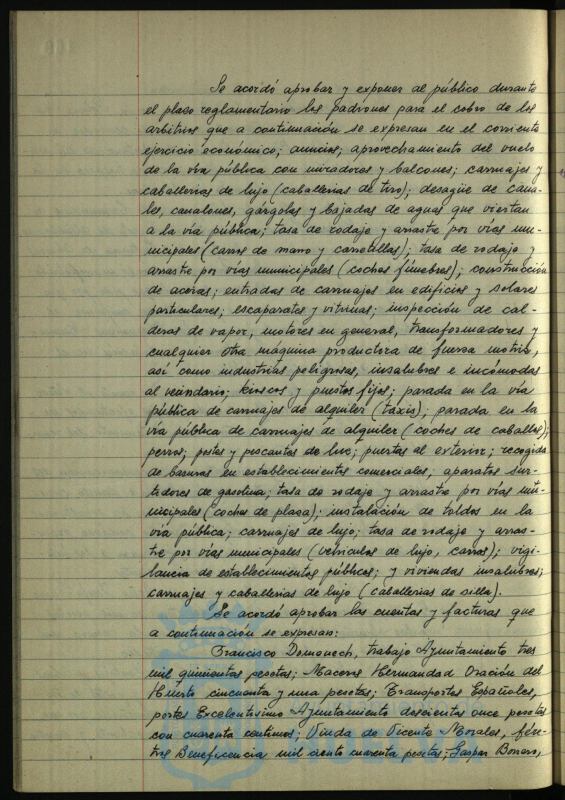 Se acordó aprobar y exponer al público durante
el plazo reglamentario los padrones para el cobro de los
arbitrios que a continuación se expresan en el corriente
ejercicio económico; anuncios; aprovechamiento del vuelo
de la vía pública con miradores y balcones; carruajes y
caballerías de lujo (caballerías de tiro); desagüe de cana-
les, canalones, gárgolas y bajadas de aguas que viertan
a la vía pública; tasa de rodaje y arrastre por vías mu-
nicipales (carros de mano y carretillas); tasa de rodaje y
arrastre por vías municipales (coches fúnebres); construcción
de aceras; entradas de carruajes en edificios y solares
particulares; escaparates y vitrinas; inspección de cal-
deras de vapor, motores en general, transformadores y
cualquier otra máquina productora de fuerza motriz,
así como industrias peligrosas, insalubres e incómodas
al vecindario; kioscos y puestos fijos; parada en la vía
pública de carruajes de alquiler (taxis); parada en la
vía pública de carruajes de alquiler (coches de caballos);
perros; postes y pescantes de luz; puertas al exterior; recogida
de basuras en establecimientos comerciales; aparatos sur-
tidores de gasolina; tasa de rodaje y arrastre por vías mu-
nicipales (coches de plaza); instalación de toldos en la
vía pública; carruajes de lujo; tasa de rodaje y arras-
tre por vías municipales (vehículos de lujo, carros); vigi-
lancia de establecimientos públicos; y viviendas insalubres;
carruajes y caballerías de lujo (caballerías de silla).
Se acordó aprobar las cuentas y facturas que
a continuación se expresan:
Francisco Domenech, trabajo Ayuntamiento tres
mil quinientas pesetas; Maceros Hermandad Oración del
Huerto cincuenta y una pesetas; Transportes Españoles,
portes Excelentísimo Ayuntamiento doscientas once pesetas
con cuarenta centimos; Viuda de Vicente Morales, fére-
tros Beneficencia mil ciento cuarenta pesetas; Gaspar